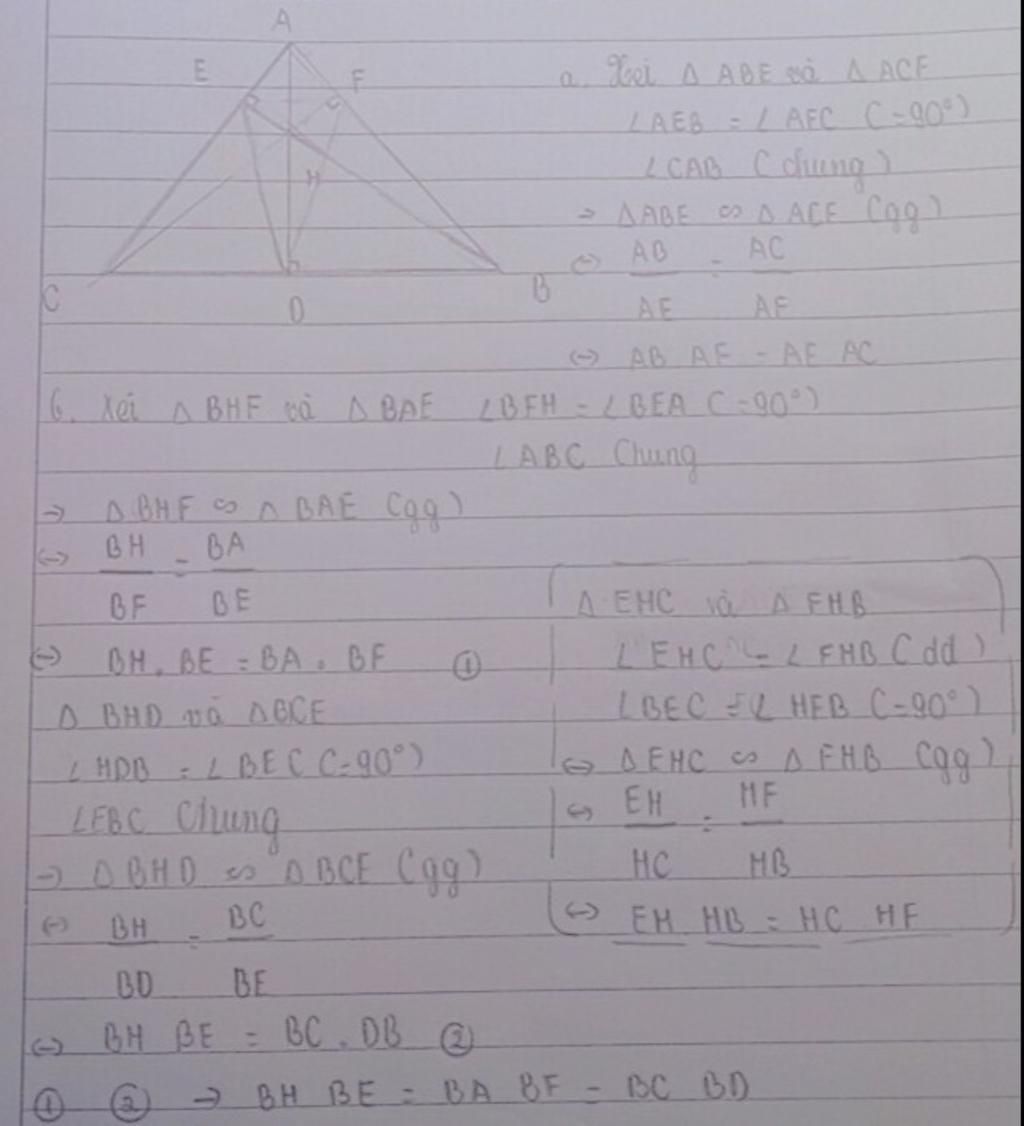 A
E
F
H
C
D
B
a. Xét Δ ABE và Δ ACF
∠AEB = ∠AFC (=90°)
∠CAB (chung)
→ ΔABE ∽ Δ ACF (gg)
<=> AB/AE = AC/AF
<=> AB AF = AE AC
b. Xét Δ BHF và Δ BAE ∠BFH = ∠BEA (=90°)
∠ABC Chung
→ Δ BHF ∽ Δ BAE (gg)
<=> BH/BF = BA/BE
<=> BH . BE = BA . BF ①
Δ BHD và ΔBCE
∠HDB = ∠BEC (=90°)
∠EBC Chung
→ ΔBHD ∽ ΔBCE (gg)
<=> BH/BD = BC/BE
<=> BH BE = BC . DB ②
① ② → BH BE = BA BF = BC BD
Δ EHC và Δ FHB
∠EHC = ∠FHB (dd)
∠BEC = ∠HFB (=90°)
<=> ΔEHC ∽ Δ FHB (gg)
<=> EH/HC = HF/HB
<=> EH HB = HC HF